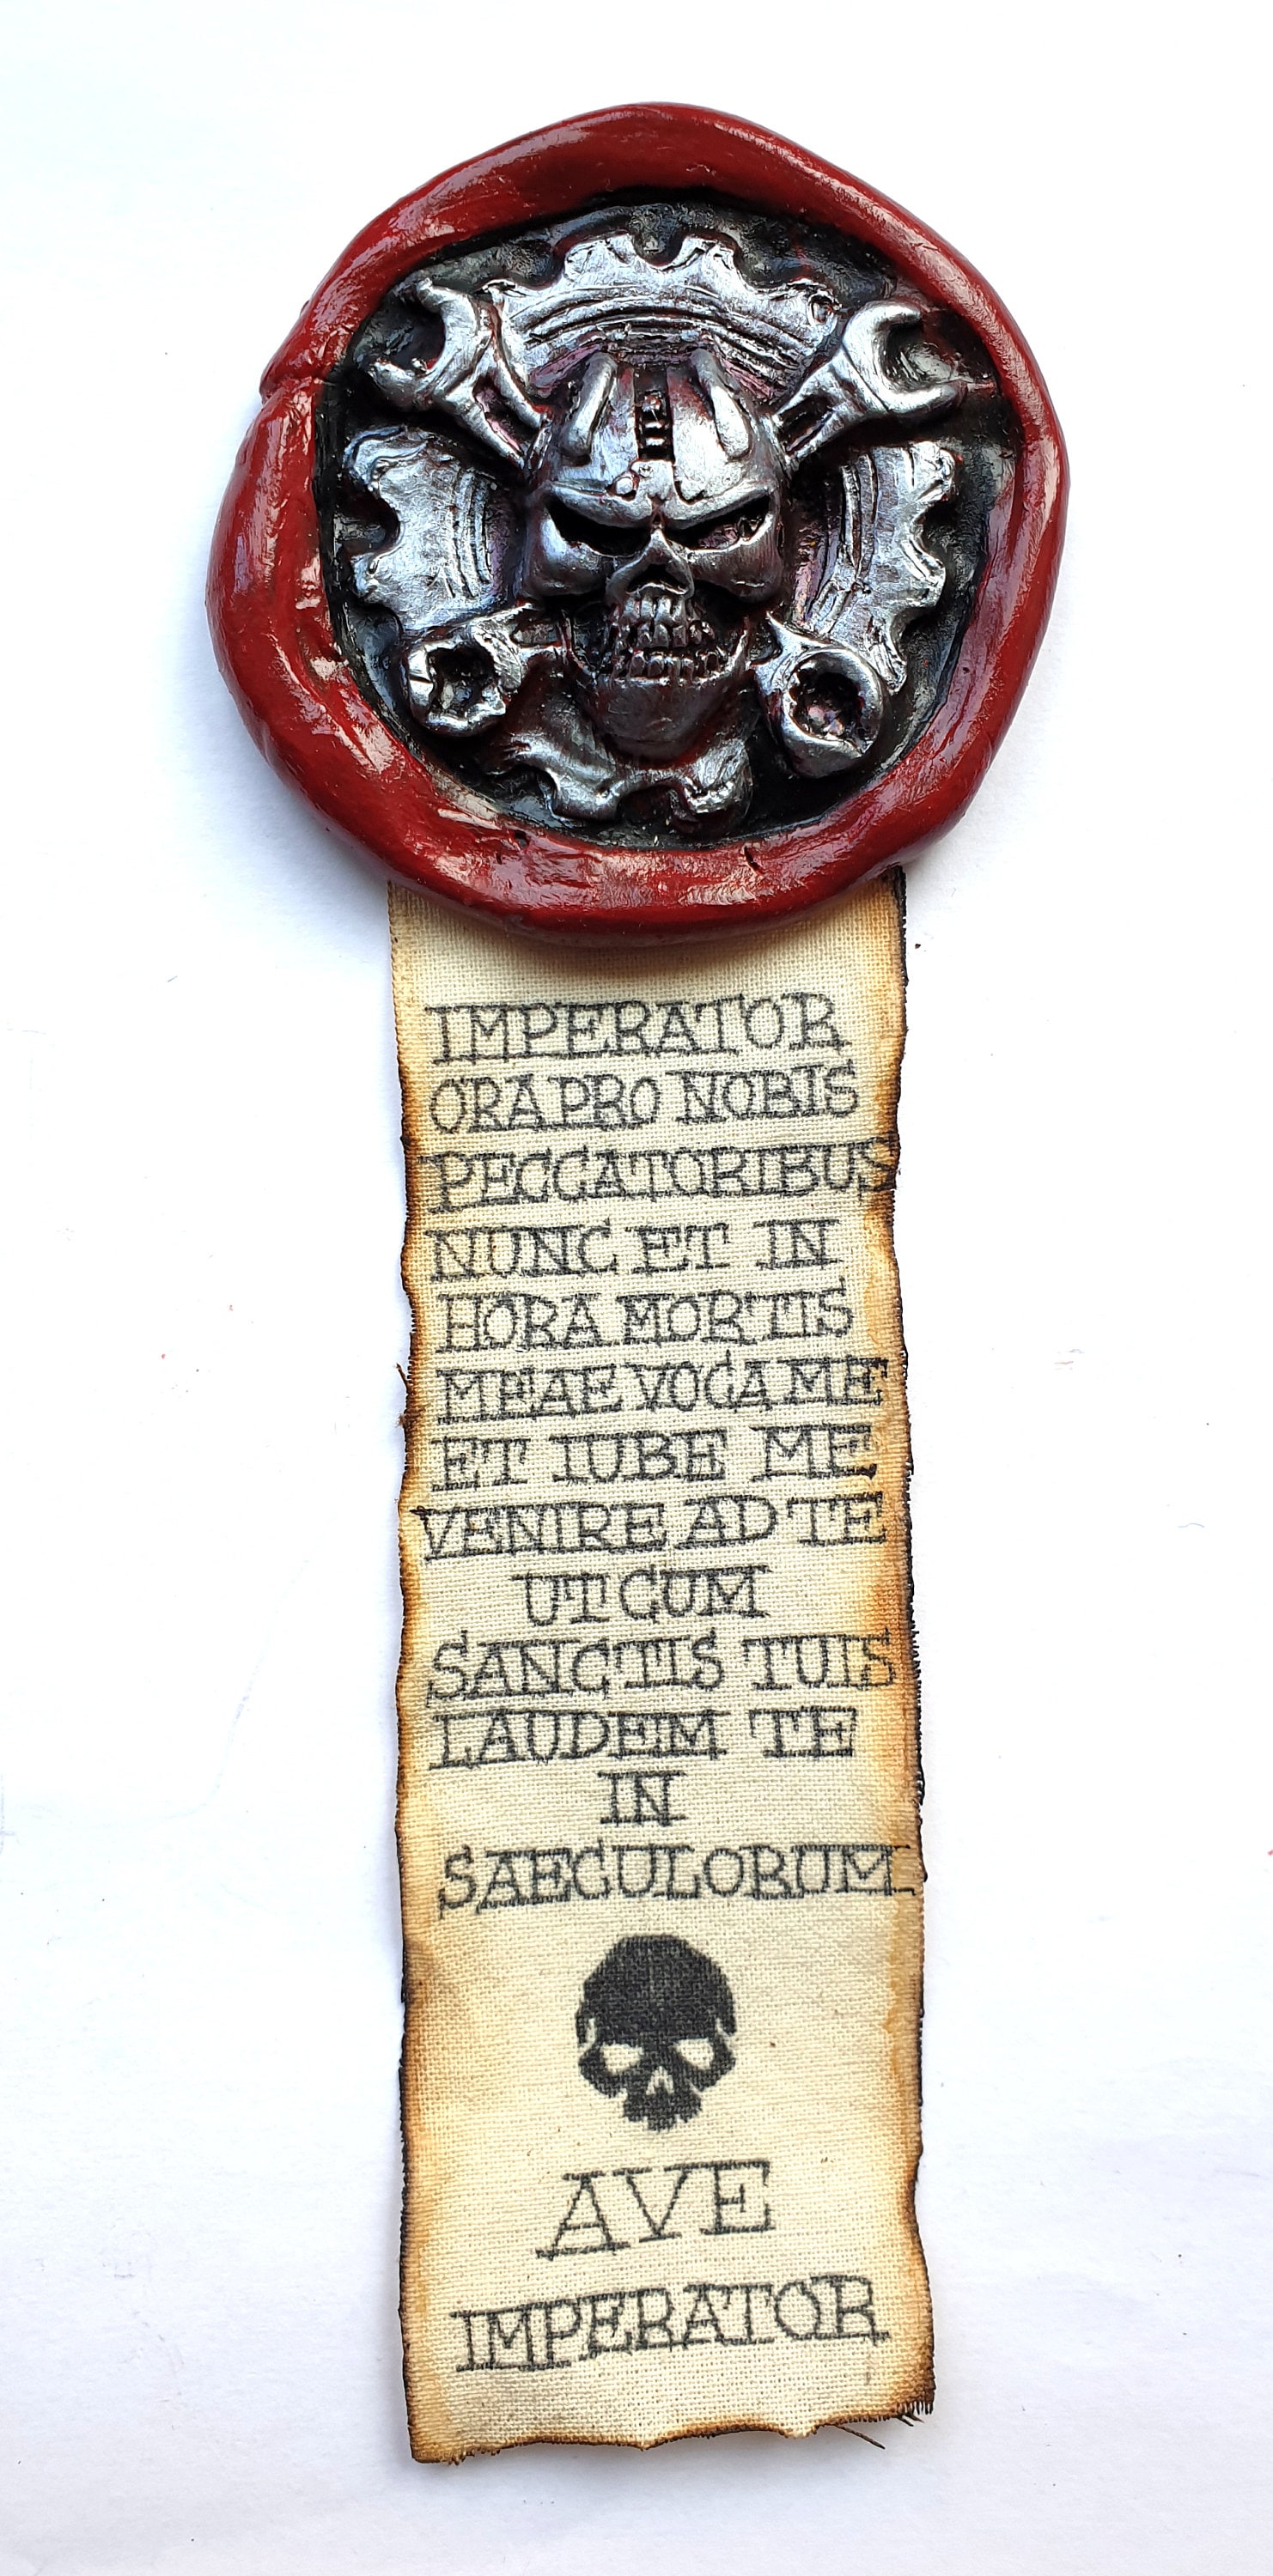 IMPERATOR
ORA PRO NOBIS
PECCATORIBUS
NUNC ET IN
HORA MORTIS
MEAE VOCA ME
ET IUBE ME
VENIRE AD TE
UT CUM
SANCTIS TUIS
LAUDEM TE
IN
SAECULORUM
AVE
IMPERATOR